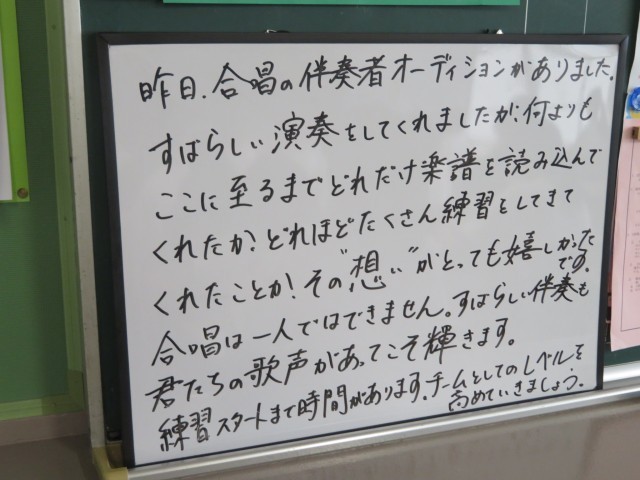 昨日、合唱の伴奏者オーディションがありました。
すばらしい演奏をしてくれましたが、何よりも
ここに至るまでどれだけ楽譜を読み込んで
くれたか、どれほどたくさん練習をしてきて
くれたことか！その"想い"がとっても嬉しかった
です。
合唱は一人ではできません。すばらしい伴奏も
君たちの歌声があってこそ輝きます。
練習スタートまで時間があります。チームとしてのレベルを
高めていきましょう。